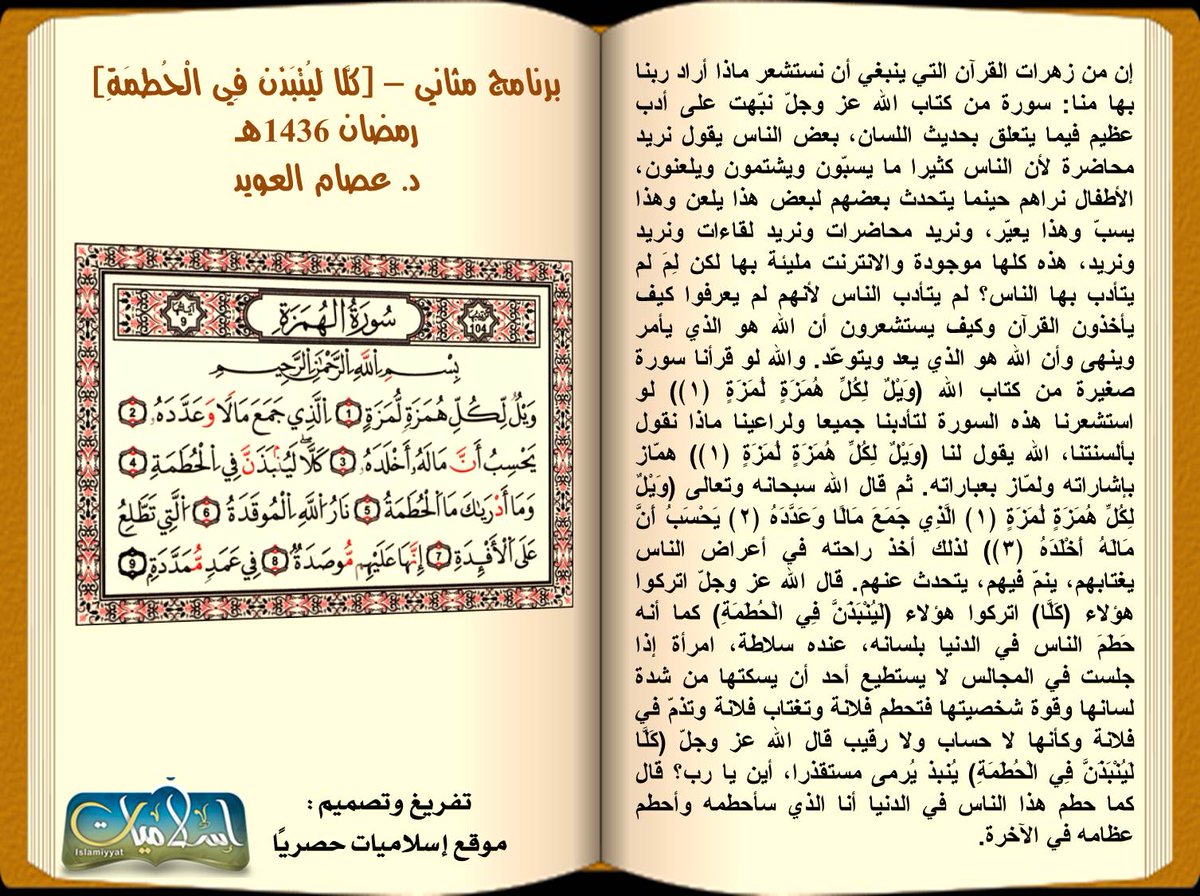 إن من زهرات القرآن التي ينبغي أن نستشعر ماذا أراد ربنا
بها منا: سورة من كتاب الله عز وجلّ نبّهت على أدب
عظيم فيما يتعلق بحديث اللسان، بعض الناس يقول نريد
محاضرة لأن الناس كثيرا ما يسبّون ويشتمون ويلعنون،
الأطفال نراهم حينما يتحدث بعضهم لبعض هذا يلعن وهذا
يسبّ وهذا يعيّر، ونريد محاضرات ونريد لقاءات ونريد
ونريد، هذه كلها موجودة والانترنت مليئة بها لكن لِمَ لم
يتأدب بها الناس؟ لم يتأدب الناس لأنهم لم يعرفوا كيف
يأخذون القرآن وكيف يستشعرون أن الله هو الذي يأمر
وينهى وأن الله هو الذي يعد ويتوعّد. والله لو قرأنا سورة
صغيرة من كتاب الله (وَيْلٌ لِكُلِّ هُمَزَةٍ لُمَزَةٍ (١)) لو
استشعرنا هذه السورة لتأدبنا جميعا ولراعينا ماذا نقول
بألسنتنا، الله يقول لنا (وَيْلٌ لِكُلِّ هُمَزَةٍ لُمَزَةٍ (١)) همّاز
بإشاراته ولمّاز بعباراته. ثم قال الله سبحانه وتعالى (وَيْلٌ
لِكُلِّ هُمَزَةٍ لُمَزَةٍ (١) الَّذِي جَمَعَ مَالًا وَعَدَّدَهُ (٢) يَحْسَبُ أَنَّ
مَالَهُ أَخْلَدَهُ (٣)) لذلك أخذ راحته في أعراض الناس
يغتابهم، ينمّ فيهم، يتحدث عنهم. قال الله عز وجلّ اتركوا
هؤلاء (كَلَّا) اتركوا هؤلاء (لَيُنْبَذَنَّ فِي الْحُطَمَةِ) كما أنه
حَطَمَ الناس في الدنيا بلسانه، عنده سلاطة، امرأة إذا
جلست في المجالس لا يستطيع أحد أن يسكتها من شدة
لسانها وقوة شخصيتها فتحطم فلانة وتغتاب فلانة وتذمّ في
فلانة وكأنها لا حساب ولا رقيب قال الله عز وجلّ (كَلَّا
لَيُنْبَذَنَّ فِي الْحُطَمَةِ) يُنبذ يُرمى مستقذرا، أين يا رب؟ قال
كما حطم هذا الناس في الدنيا أنا الذي سأحطمه وأحطم
عظامه في الآخرة.
برنامج مثاني – [كَلَّا لَيُنْبَذَنَّ فِي الْحُطَمَةِ]
رمضان 1436هـ
د. عصام العويد
ترتيبها 104 سُورَةُ الْهُمَزَةِ آياتها 9
بِسْمِ اللَّهِ الرَّحْمَٰنِ الرَّحِيمِ
وَيْلٌ لِّكُلِّ هُمَزَةٍ لُّمَزَةٍ 1 الَّذِي جَمَعَ مَالًا وَعَدَّدَهُ 2
يَحْسِبُ أَنَّ مَالَهُ أَخْلَدَهُ 3 كَلَّا لَيُنْبَذَنَّ فِي الْحُطَمَةِ 4
وَمَا أَدْرَىٰكَ مَا الْحُطَمَةُ 5 نَارُ اللَّهِ الْمُوقَدَةُ 6 الَّتِي تَطَّلِعُ
عَلَى الْأَفْئِدَةِ 7 إِنَّهَا عَلَيْهِم مُّوصَدَةٌ 8 فِي عَمَدٍ مُّمَدَّدَةٍ 9
تفريغ وتصميم :
موقع إسلاميات حصريًا
إسلاميات
Islamiyyat